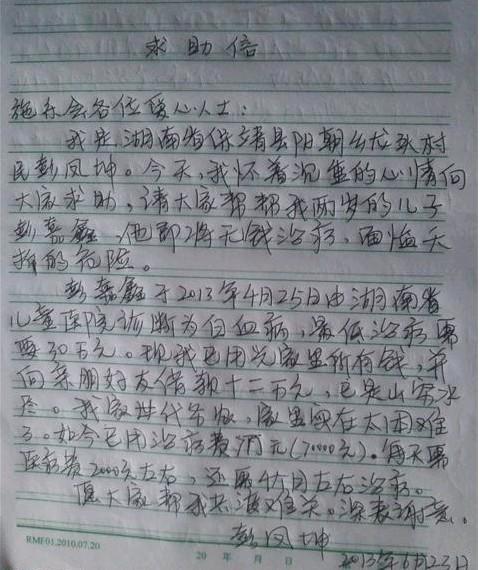 求助信
施乐会各位爱心人士：
我是湖南省保靖县阳朝乡龙头村
民彭凤坤。今天，我怀着沉重的心情向
大家求助，请大家帮帮我两岁的儿子
彭嘉鑫，他即将无钱治病、面临夭
折的危险。
彭嘉鑫于2013年4月25日由湖南省
儿童医院诊断为白血病，最低治病需
要30万元。现我已用光家里所有钱，并
向亲朋好友借款十二万元，已是山穷水
尽。我家世代务农，家里实在太困难
了。如今已用治病费万元(70000元)。每天需
医药费2000元左右，还需4个月左右治病。
愿大家帮我共渡难关。深表谢意。
彭凤坤
2013年6月23日
RMF01.2010.07.20
20 年 月 日